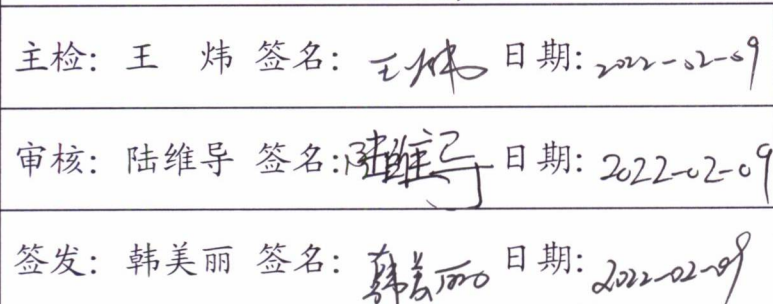 主检: 王 炜 签名: 王炜 日期: 2022-02-09
审核: 陆维导 签名: 陆维导 日期: 2022-02-09
签发: 韩美丽 签名: 韩美丽 日期: 2022-02-09